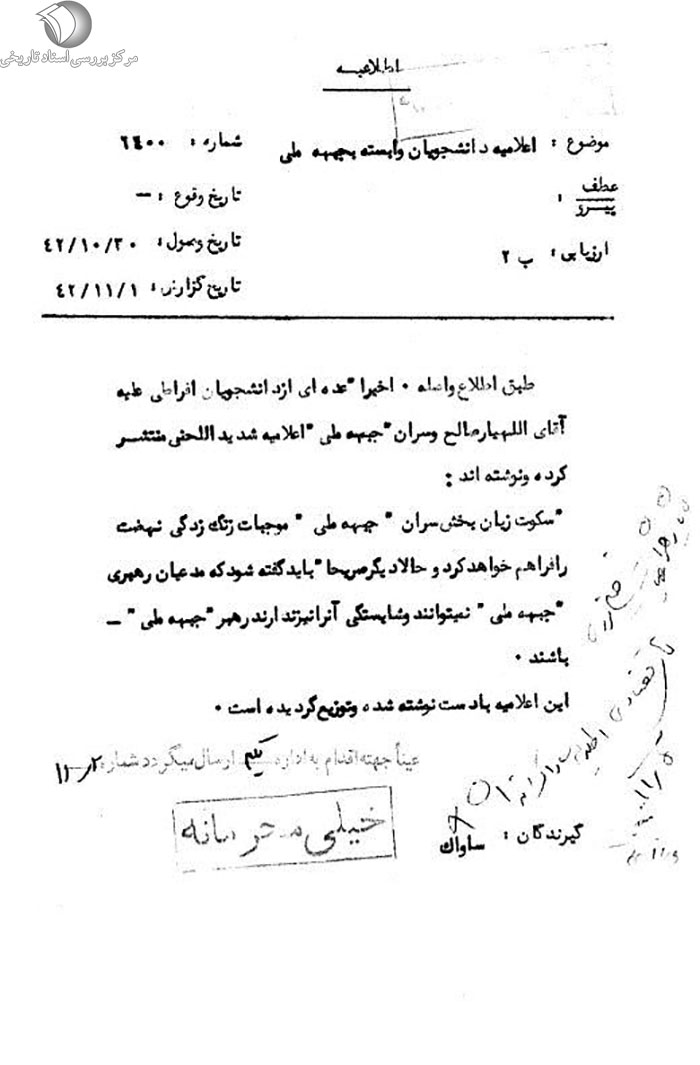 مرکز بررسی اسناد تاریخی
اطلاعیه
موضوع : اعلامیه دانشجویان وابسته بجبهه ملی
شماره : ٦٤٠٠
عطف
پیرو :
تاریخ وقوع : —
ارزیابی : ب ٢
تاریخ وصول : ٤٢/١٠/٣٠
تاریخ گزارش : ٤٢/١١/١
طبق اطلاع واصله ٠ اخیرا" عده ای از دانشجویان افراطی علیه
آقای اللهیار صالح و سران "جبهه ملی" اعلامیه شدید اللحنی منتشر
کرده و نوشته اند :
"سکوت زیان بخش سران " جبهه ملی " موجبات زنگ زدگی نهضت
را فراهم خواهد کرد و حالا دیگر صریحا" باید گفته شود که مدعیان رهبری
"جبهه ملی " نمیتوانند و شایستگی آنرا نیز ندارند رهبر "جبهه ملی " —
باشند ٠
این اعلامیه با دست نوشته شده و توزیع گردیده است ٠
عیناً جهته اقدام به اداره یکم ارسال میگردد شماره
خیلی محرمانه
گیرندگان : ساواک